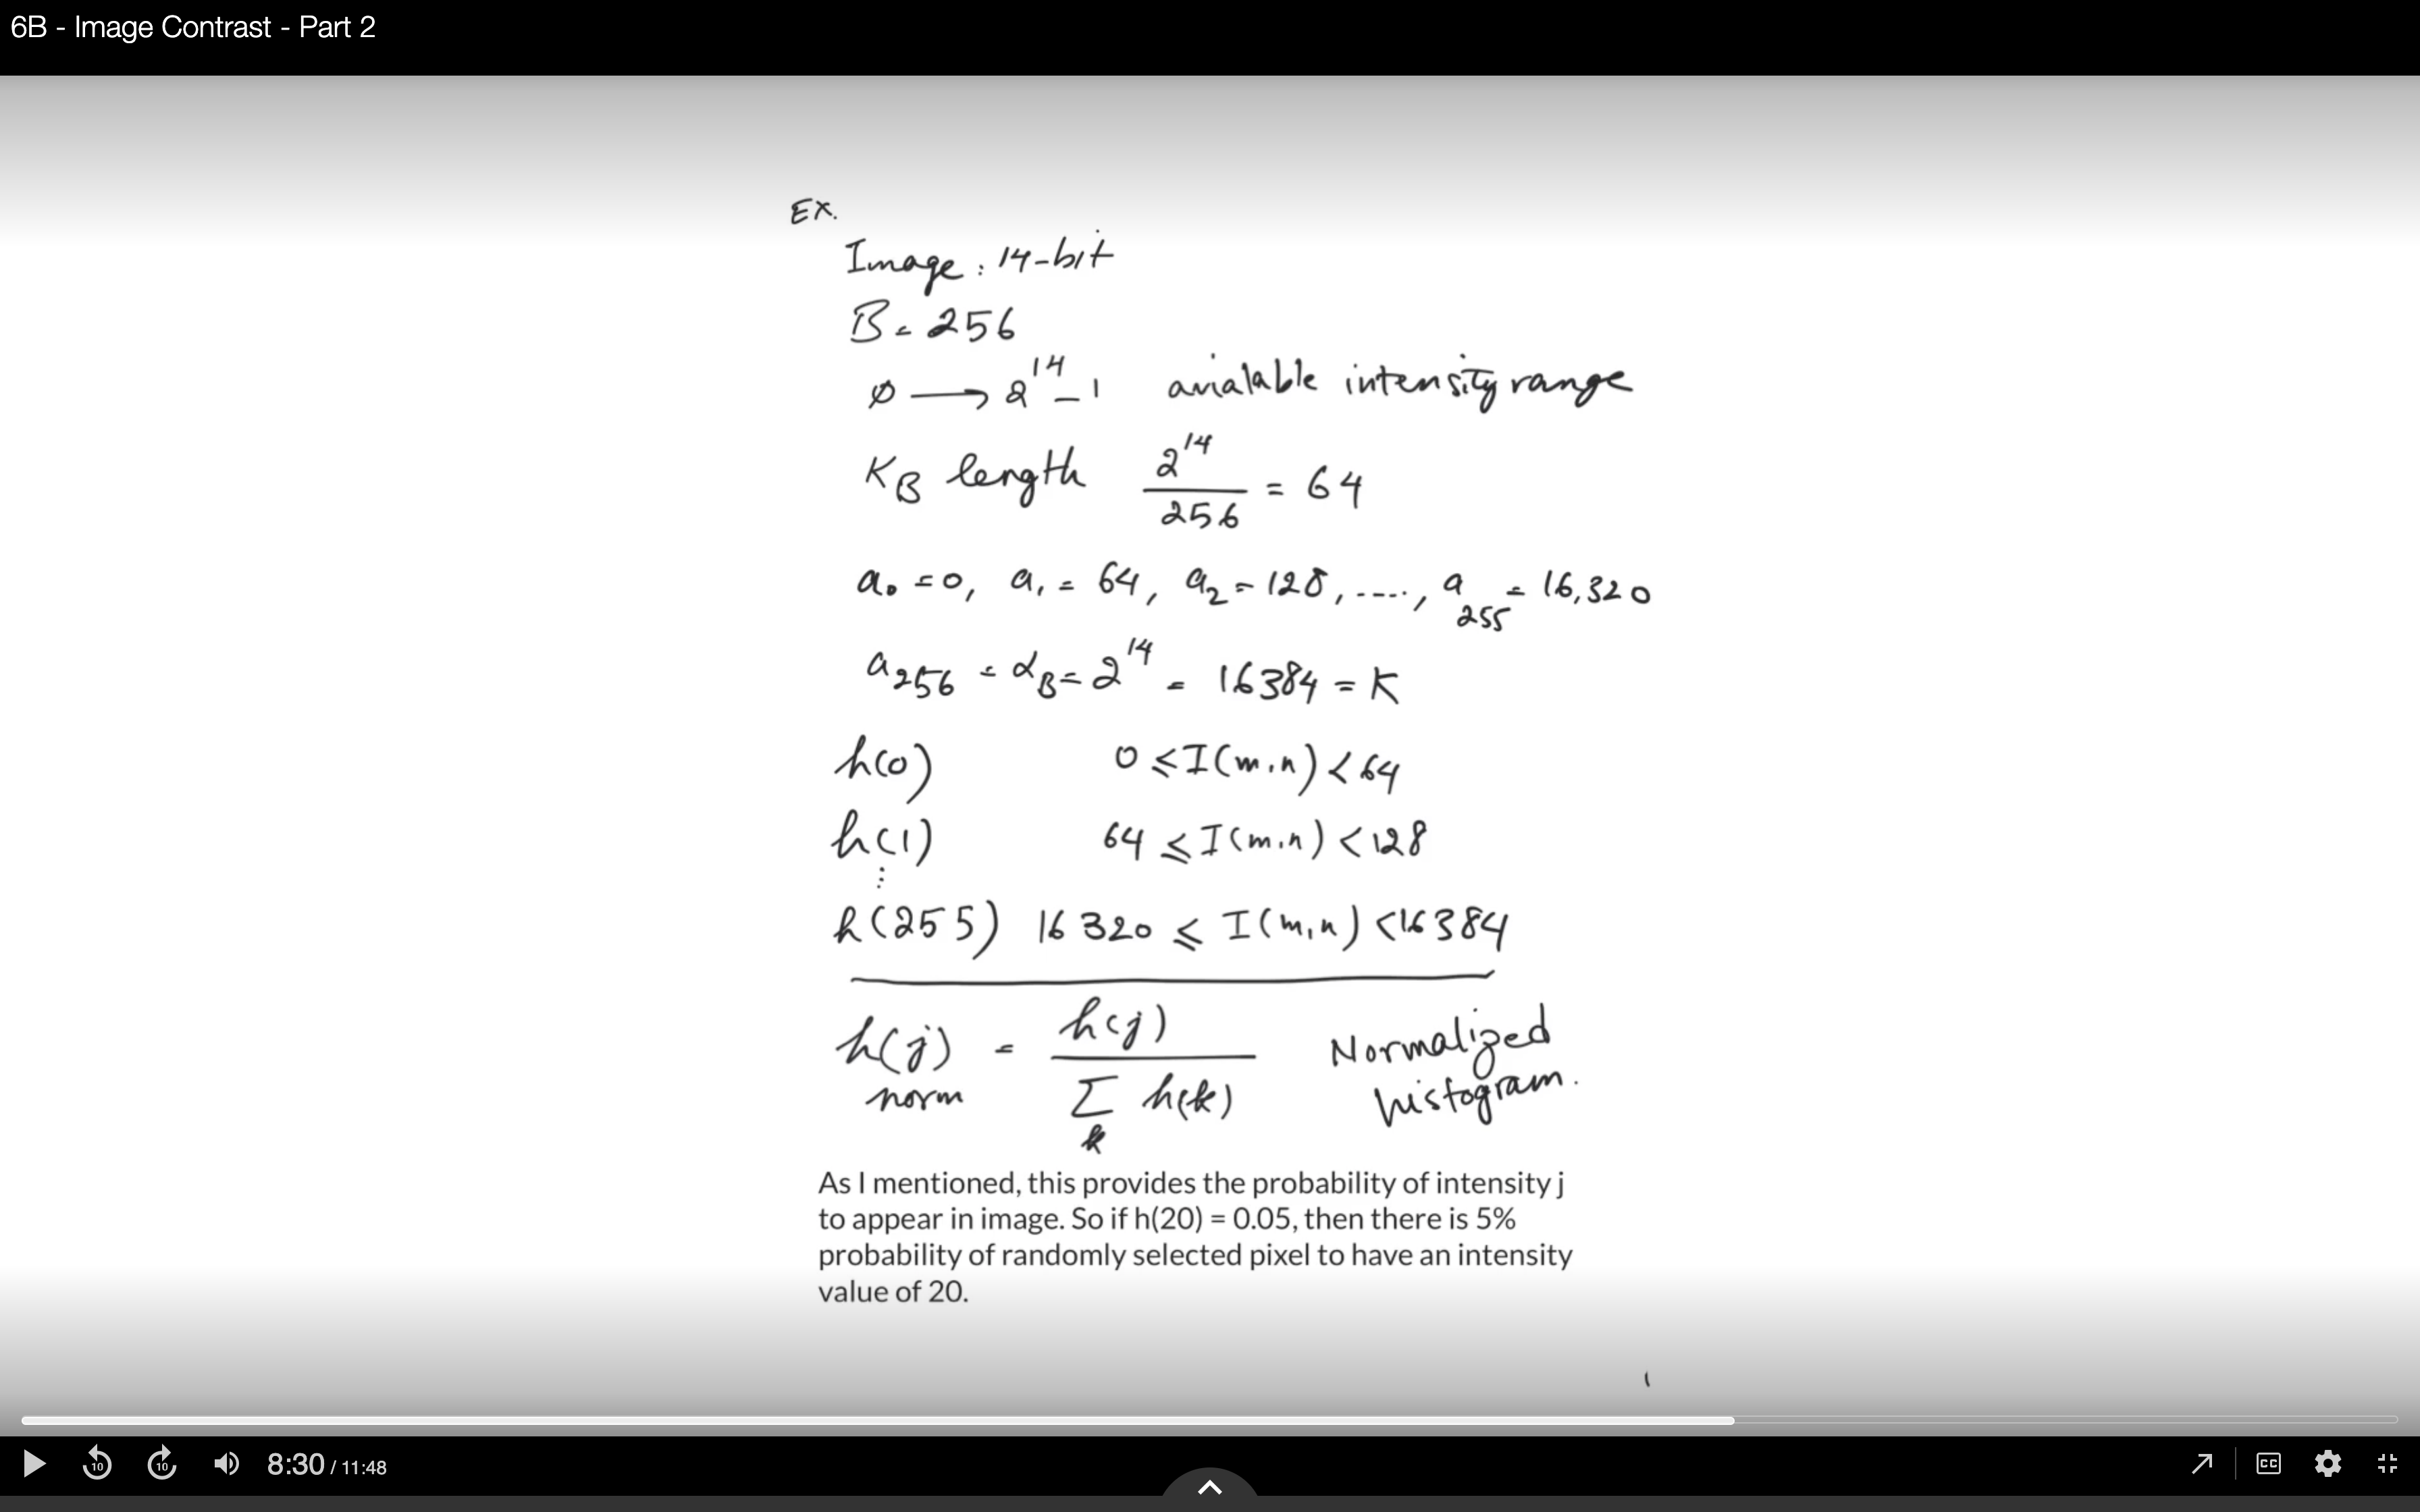 6B - Image Contrast - Part 2
EX.
Image : 14-bit
B = 256
0 → 2^14 - 1 avialable intensity range
K_B length 2^14 / 256 = 64
a_0 = 0, a_1 = 64, a_2 = 128, ....., a_255 = 16,320
a_256 = α_B = 2^14 = 16384 = K
h(0) 0 ≤ I(m,n) < 64
h(1) 64 ≤ I(m,n) < 128
⋮
h(255) 16320 ≤ I(m,n) < 16384
h(j)_norm = h(j) / Σ_k h(k) Normalized histogram.
As I mentioned, this provides the probability of intensity j
to appear in image. So if h(20) = 0.05, then there is 5%
probability of randomly selected pixel to have an intensity
value of 20.
10 10 8:30 / 11:48 CC